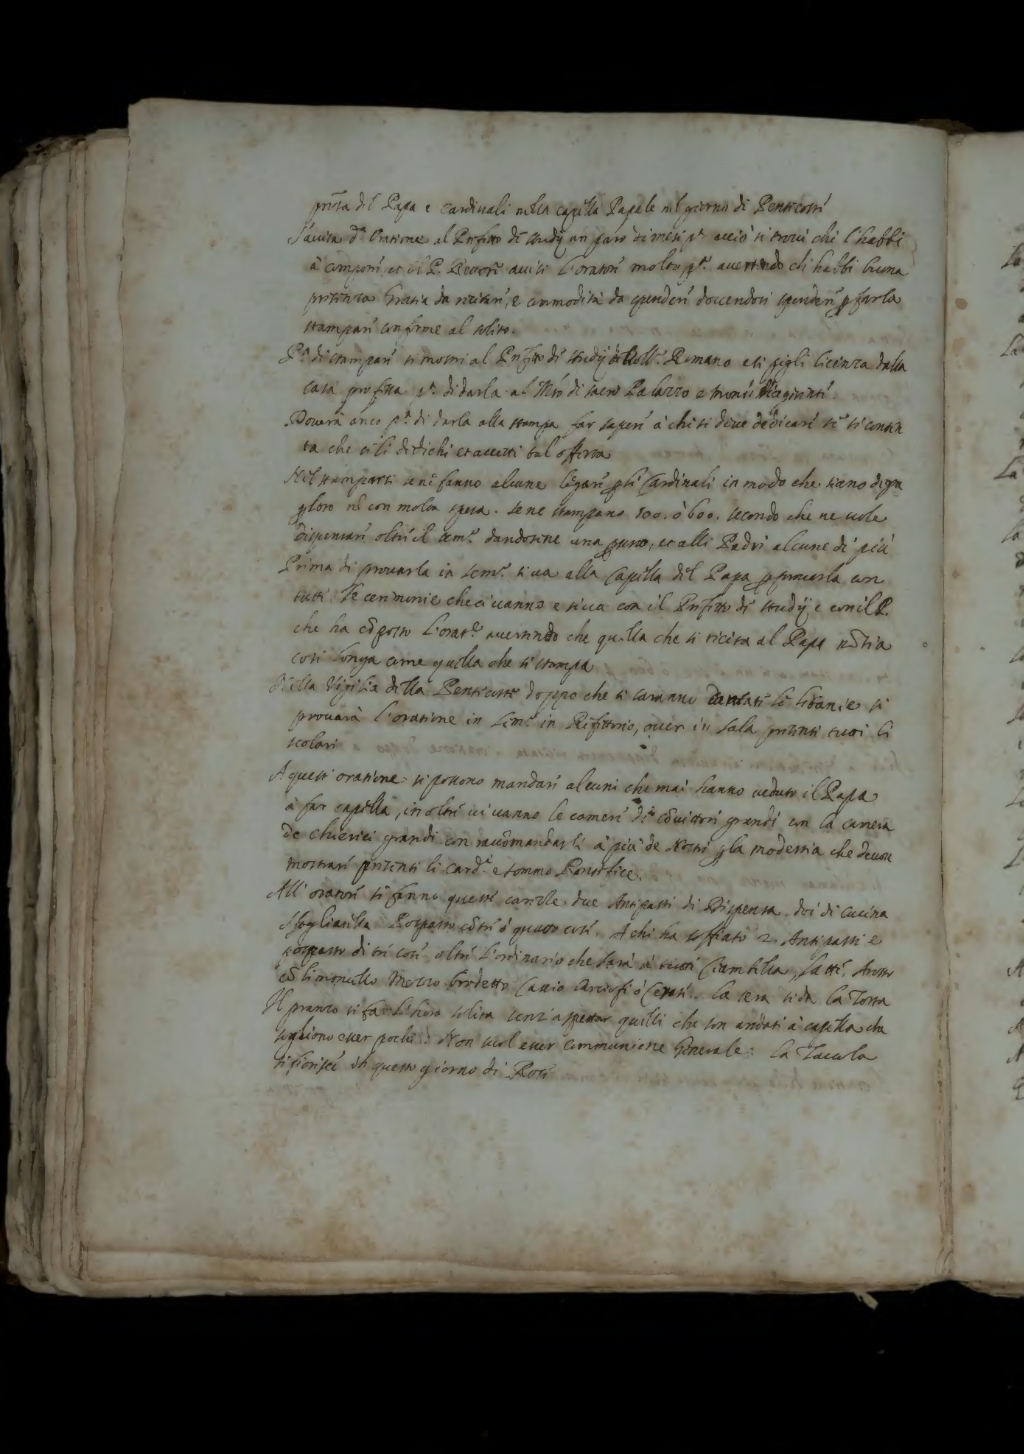 pñza del Papa e Cardinali nella capella Papale nel giorno di Pentecoste
S'avisa dª oratione al Prefetto di studij un paro di mesi pª acciò si trovi chi l'habbi
à componere, et il P. Rettore avisi l'oratore molto pª avertendo ch'habbi buona
presenza gratia da recitare, e commodità da spendere dovendosi spendere p farla
stampare conforme al solito.
Pª di stampare si mostri al Prefetto di studij Collº Romano e si pigli licenza dalla
casa professa pª di darla al Mrõ di sacro Palazzo e
Dovarà anco pª di darla alla stampa far sapere à chi si deve dedicare se si conten
ta che se li dedichi et accetti tal offerta
Nel stamparsi se ne fanno alcune legare p li Cardinali in modo che siano degne
loro ne con molta spesa. se ne stampano 500. ò 600. secondo che ne vole
dispensare oltre il semº dandosene una p uno, et alli Padri alcune di più
Prima di provarla in semº si va alla Capella del Papa p provarla con
tutte le cerimonie che ci vanno e si va con il Prefetto di studij e con il P.
che ha cõposto l'oratº avertendo che quella che si recita al Papa nõ sia
cosi longa come quella che si stampa
Nella Vigilia della Pentecoste doppo che si saranno cantate le litanie si
provarà l'oratione in semº in Refettorio, over in sala presenti tutti li
scolari
A questi oratione si possono mandare alcuni che mai hanno veduto il Papa
à far capella, inoltre ci vanno le camere di cõvittori grandi con la camera
de chierici grandi con raccõmandarli à più de Nostri p la modestia che devon
mostrare presenti li Cardˡⁱ e sommo Pontefice.
All'oratore si fanno queste carezze due Antipasti di Dispensa doi di cucina
sfogliatella Pospasto cõ tre ò quatro cose. A chi ha 2 Antipasti e
pospasto di tre cose oltre l'ordinario che sarà à tutti Ciambella, Latte, Arosto
cõ limoncello Mezzo brodetto Cascio Carciofi ò Cerase. La sera si da la Torta
Il pranzo si fa l'hora solita senz'aspettar quelli che son andati à capella che
sogliono esser pochi. Non suol esser communione Generale. La Tavola
si fiorisce in questo giorno di Rose